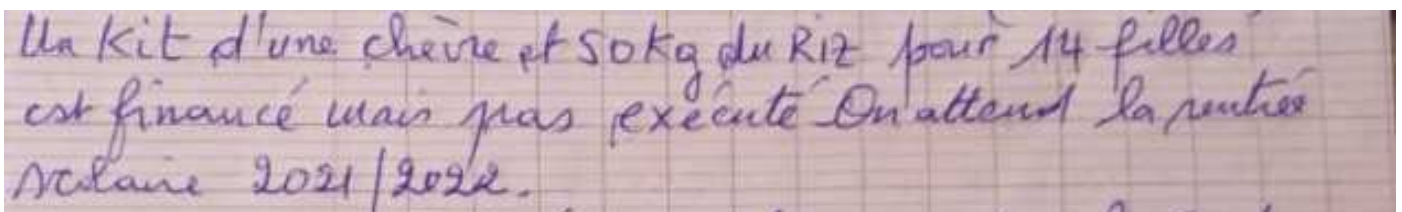 Un Kit d'une chèvre et 50kg du RIZ pour 14 filles
est financé mais pas exécuté On attend la rentrée
scolaire 2021/2022.